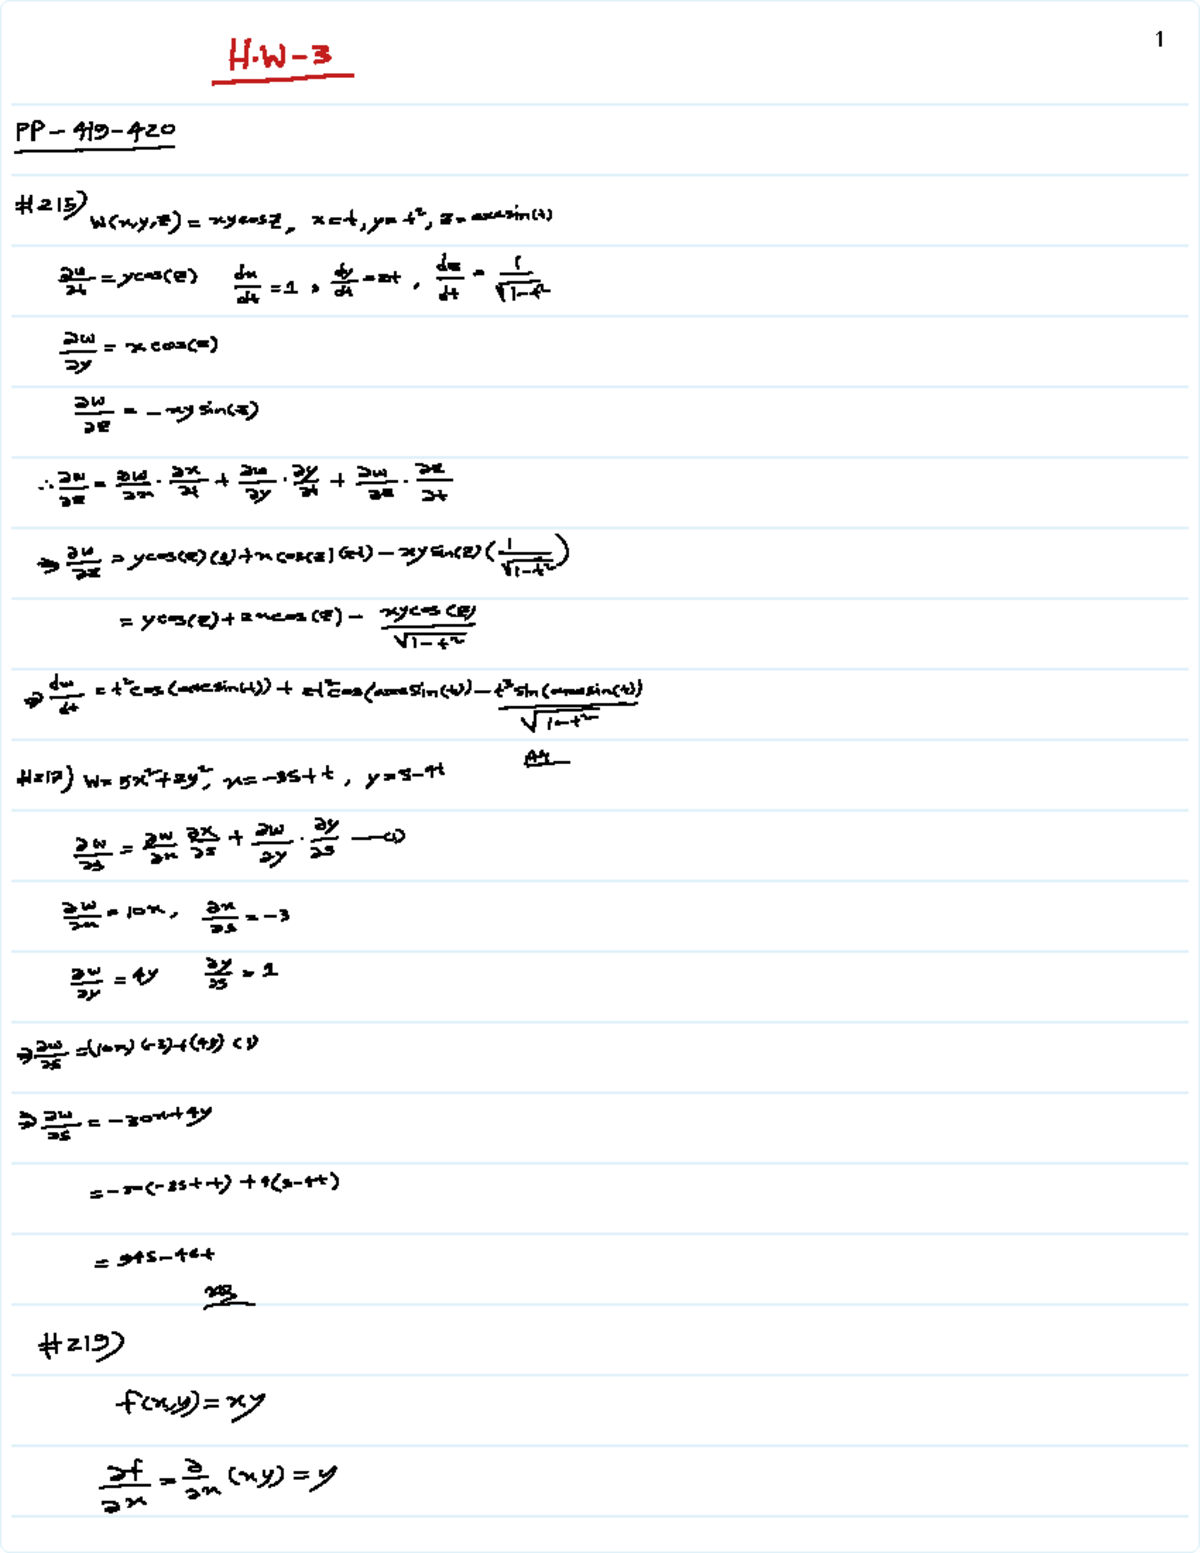 1
H.W-3
PP-419-420
#215) W(x,y,z) = xycosz, x=t, y=t², z=arcsin(t)
∂w/∂t = ycos(z) dx/dt = 1, dy/dt = 2t, dz/dt = 1/√(1-t²)
∂w/∂y = xcos(z)
∂w/∂z = -xysin(z)
∴ ∂w/∂z = ∂w/∂x · ∂x/∂t + ∂w/∂y · ∂y/∂t + ∂w/∂z · ∂z/∂t
⇒ ∂w/∂z = ycos(z)(1) + xcos(z)(2t) - xysin(z)(1/√(1-t²))
= ycos(z) + 2xcos(z) - xycos(z)/√(1-t²)
⇒ dw/dt = t²cos(arcsin(t)) + 2t²cos(arcsin(t)) - t³sin(arcsin(t))/√(1-t²)
#217) W = 5x²+2y², x=-3s+t, y=s-4t
∂w/∂s = ∂w/∂x ∂x/∂s + ∂w/∂y · ∂y/∂s —(1)
∂w/∂x = 10x, ∂x/∂s = -3
∂w/∂y = 4y ∂y/∂s = 1
⇒ ∂w/∂s = (10x)(-3)+(4y)(1)
⇒ ∂w/∂s = -30x+4y
= -30(-3s+t)+4(s-4t)
= 94s-46t
#219)
f(x,y) = xy
∂f/∂x = ∂/∂x (xy) = y